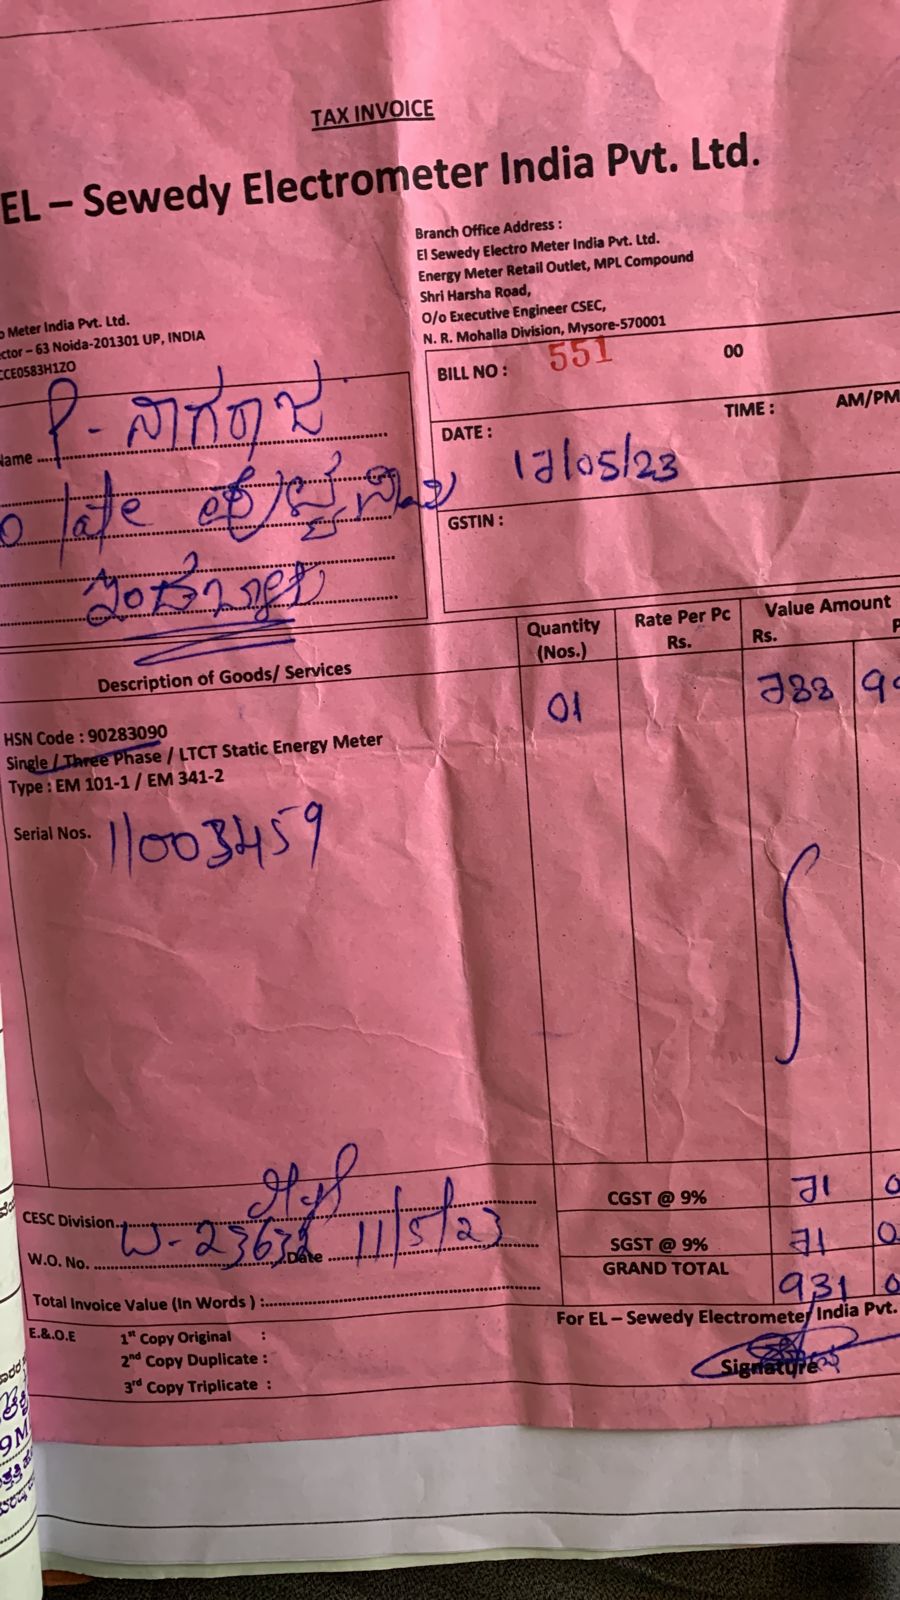 TAX INVOICE
EL – Sewedy Electrometer India Pvt. Ltd.
Branch Office Address :
El Sewedy Electro Meter India Pvt. Ltd.
Energy Meter Retail Outlet, MPL Compound
Shri Harsha Road,
O/o Executive Engineer CSEC,
N. R. Mohalla Division, Mysore-570001
Meter India Pvt. Ltd.
ctor – 63 Noida-201301 UP, INDIA
CCE0583H1ZO
BILL NO : 551 00
TIME : AM/PM
DATE :
GSTIN :
ame P - ನಾಗರಾಜ
late
Description of Goods/ Services
Quantity (Nos.)
Rate Per Pc Rs.
Value Amount
Rs. P
01 788
HSN Code : 90283090
Single / Three Phase / LTCT Static Energy Meter
Type : EM 101-1 / EM 341-2
Serial Nos. 11003459
CESC Division
W.O. No. W-23632 Date 11/5/23
Total Invoice Value (In Words ) :
CGST @ 9% 71
SGST @ 9% 71
GRAND TOTAL 931
For EL – Sewedy Electrometer India Pvt.
E.&.O.E 1st Copy Original :
2nd Copy Duplicate :
3rd Copy Triplicate :
Signature